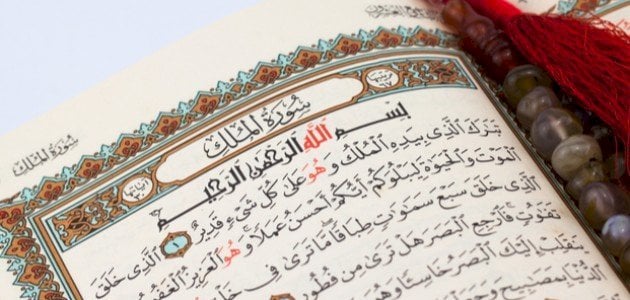 سُورَةُ المُلْكِ
سُورَةُ المُلْكِ
بِسْمِ اللَّهِ الرَّحْمَٰنِ الرَّحِيمِ
تَبَٰرَكَ ٱلَّذِي بِيَدِهِ ٱلْمُلْكُ وَهُوَ عَلَىٰ كُلِّ شَيْءٍ قَدِيرٌ ١ ٱلَّذِي خَلَقَ
ٱلْمَوْتَ وَٱلْحَيَوٰةَ لِيَبْلُوَكُمْ أَيُّكُمْ أَحْسَنُ عَمَلًا وَهُوَ ٱلْعَزِيزُ ٱلْغَفُورُ
ٱلَّذِي خَلَقَ سَبْعَ سَمَٰوَٰتٍ طِبَاقًا مَّا تَرَىٰ فِي خَلْقِ
تَفَٰوُتٍ فَٱرْجِعِ ٱلْبَصَرَ هَلْ تَرَىٰ مِن فُطُورٍ
يَنقَلِبْ إِلَيْكَ ٱلْبَصَرُ خَاسِئًا وَهُوَ
ٱلدُّنْيَا بِمَصَٰبِيحَ